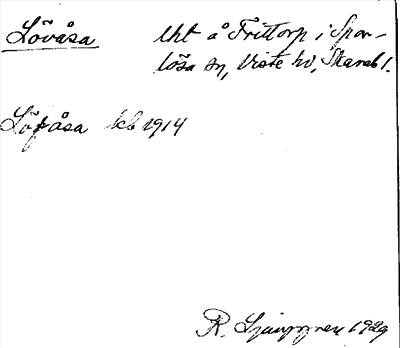 Lövåsa lht å Frittorp i Spor-
lösa sn, Viste hd, Skarab l.
Löfåsa kb 1914
R. Ljunggren 1929